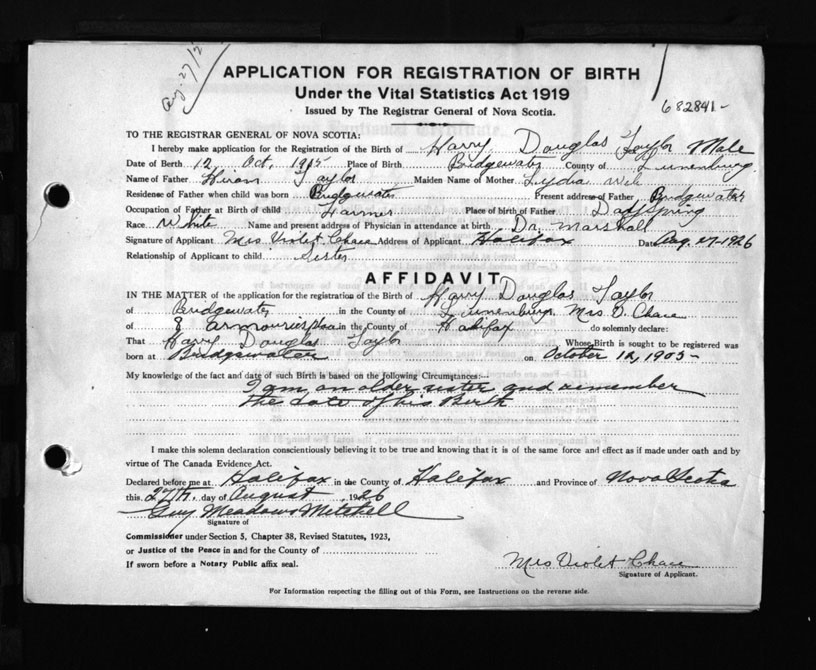 Aug. 27/2
APPLICATION FOR REGISTRATION OF BIRTH
Under the Vital Statistics Act 1919
Issued by The Registrar General of Nova Scotia.
682841-
TO THE REGISTRAR GENERAL OF NOVA SCOTIA:
I hereby make application for the Registration of the Birth of Harry Douglas Taylor Male
Date of Birth 12 Oct. 1905 Place of Birth Bridgewater County of Lunenburg
Name of Father Hiram Taylor Maiden Name of Mother Lydia
Residence of Father when child was born Bridgewater Present address of Father Bridgewater
Occupation of Father at Birth of child Farmer Place of birth of Father Spring
Race White Name and present address of Physician in attendance at birth Dr. Marshall
Signature of Applicant Mrs Violet Chase Address of Applicant Halifax Date Aug. 27-1926
Relationship of Applicant to child Sister
AFFIDAVIT
IN THE MATTER of the application for the registration of the Birth of Harry Douglas Taylor
of Bridgewater in the County of Lunenburg, Mrs V. Chase
of 8 Armouries place in the County of Halifax do solemnly declare:
That Harry Douglas Taylor Whose Birth is sought to be registered was
born at Bridgewater on October 12, 1905-
My knowledge of the fact and date of such Birth is based on the following Circumstances:—
I am an older sister and remember
the date of his Birth
I make this solemn declaration conscientiously believing it to be true and knowing that it is of the same force and effect as if made under oath and by
virtue of The Canada Evidence Act.
Declared before me at Halifax in the County of Halifax and Province of Nova Scotia
this 27th. day of August 1926
Guy Meadows Mitchell
Signature of
Commissioner under Section 5, Chapter 38, Revised Statutes, 1923,
or Justice of the Peace in and for the County of
If sworn before a Notary Public affix seal.
Mrs Violet Chase
Signature of Applicant.
For Information respecting the filling out of this Form, see Instructions on the reverse side.